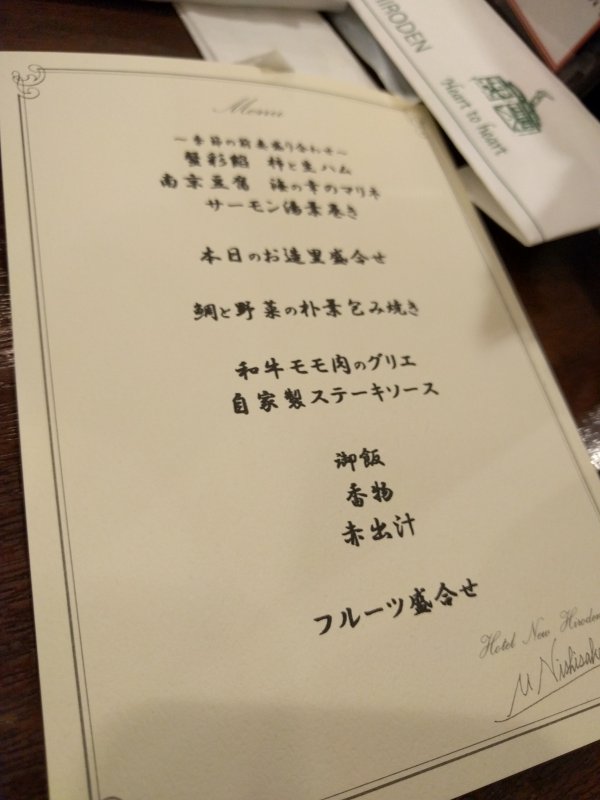 HIRODEN
Heart to heart
Menu
～季節の前菜盛り合わせ～
蟹彩餡　柿と生ハム
南京豆腐　海の幸のマリネ
サーモン湯葉巻き
本日のお造里盛合せ
鯛と野菜の朴葉包み焼き
和牛モモ肉のグリエ
自家製ステーキソース
御飯
香物
赤出汁
フルーツ盛合せ
Hotel New Hiroden